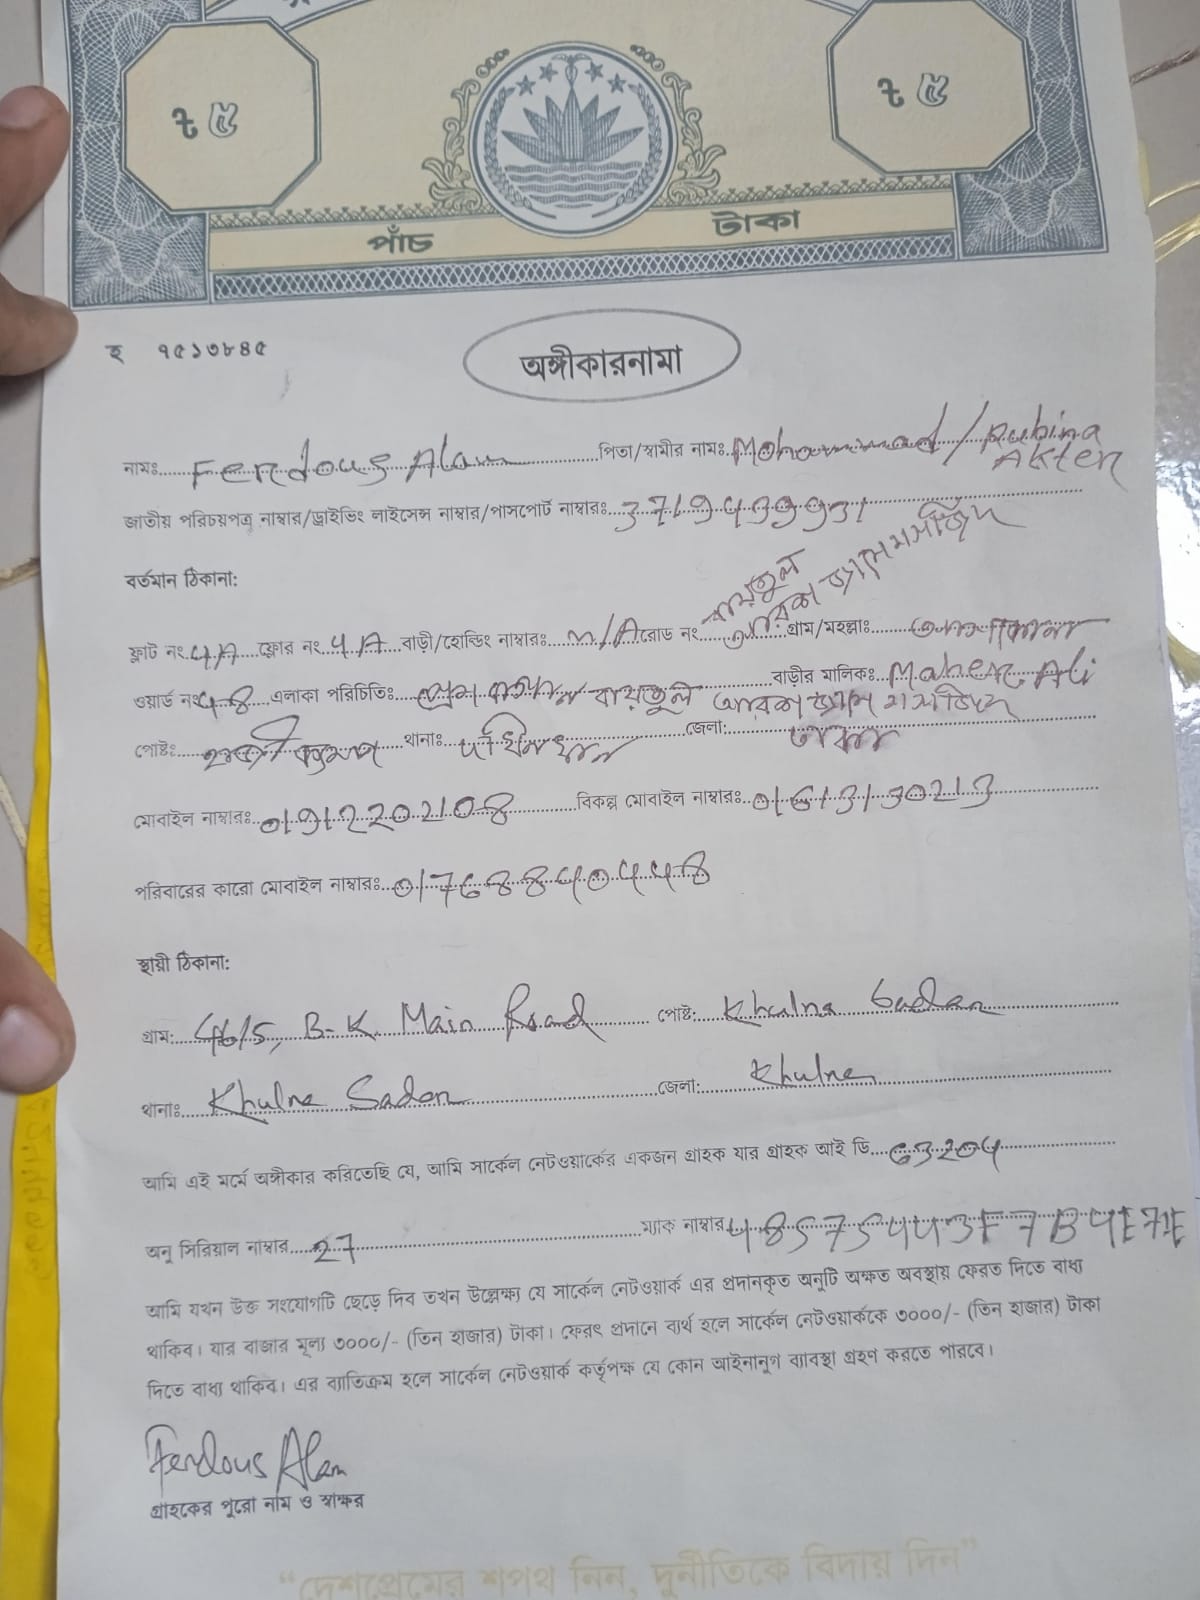 ৳ ৫
৳ ৫
পাঁচ টাকা
হ ৭৫১৩৮৪৫
অঙ্গীকারনামা
নামঃ Ferdous Alam পিতা/স্বামীর নামঃ Mohammad / Rubina Akter
জাতীয় পরিচয়পত্র নাম্বার/ড্রাইভিং লাইসেন্স নাম্বার/পাসপোর্ট নাম্বারঃ 3719439931
বর্তমান ঠিকানা:
ফ্লাট নং 4A ফ্লোর নং 4A বাড়ী/হোল্ডিং নাম্বারঃ N/A রোড নং বায়তুল জামে মসজিদ গ্রাম/মহল্লাঃ
ওয়ার্ড নং 48 এলাকা পরিচিতিঃ বায়তুল জামে মসজিদ বাড়ীর মালিকঃ Maher Ali
পোষ্টঃ থানাঃ জেলা: ঢাকা
মোবাইল নাম্বারঃ 01912202108 বিকল্প মোবাইল নাম্বারঃ 01613130213
পরিবারের কারো মোবাইল নাম্বারঃ 01768840448
স্থায়ী ঠিকানা:
গ্রাম: 46/5, B-K Main Road পোষ্ট: Khulna Sadar
থানাঃ Khulna Sadar জেলা: Khulna
আমি এই মর্মে অঙ্গীকার করিতেছি যে, আমি সার্কেল নেটওয়ার্কের একজন গ্রাহক যার গ্রাহক আই ডি 63204
অনু সিরিয়াল নাম্বার 27 ম্যাক নাম্বার 48575443F7B4E71E
আমি যখন উক্ত সংযোগটি ছেড়ে দিব তখন উল্লেক্ষ্য যে সার্কেল নেটওয়ার্ক এর প্রদানকৃত অনুটি অক্ষত অবস্থায় ফেরত দিতে বাধ্য
থাকিব। যার বাজার মূল্য ৩০০০/- (তিন হাজার) টাকা। ফেরৎ প্রদানে ব্যর্থ হলে সার্কেল নেটওয়ার্ককে ৩০০০/- (তিন হাজার) টাকা
দিতে বাধ্য থাকিব। এর ব্যাতিক্রম হলে সার্কেল নেটওয়ার্ক কর্তৃপক্ষ যে কোন আইনানুগ ব্যাবস্থা গ্রহণ করতে পারবে।
Ferdous Alam
গ্রাহকের পুরো নাম ও স্বাক্ষর
“দেশপ্রেমের শপথ নিন, দুর্নীতিকে বিদায় দিন”